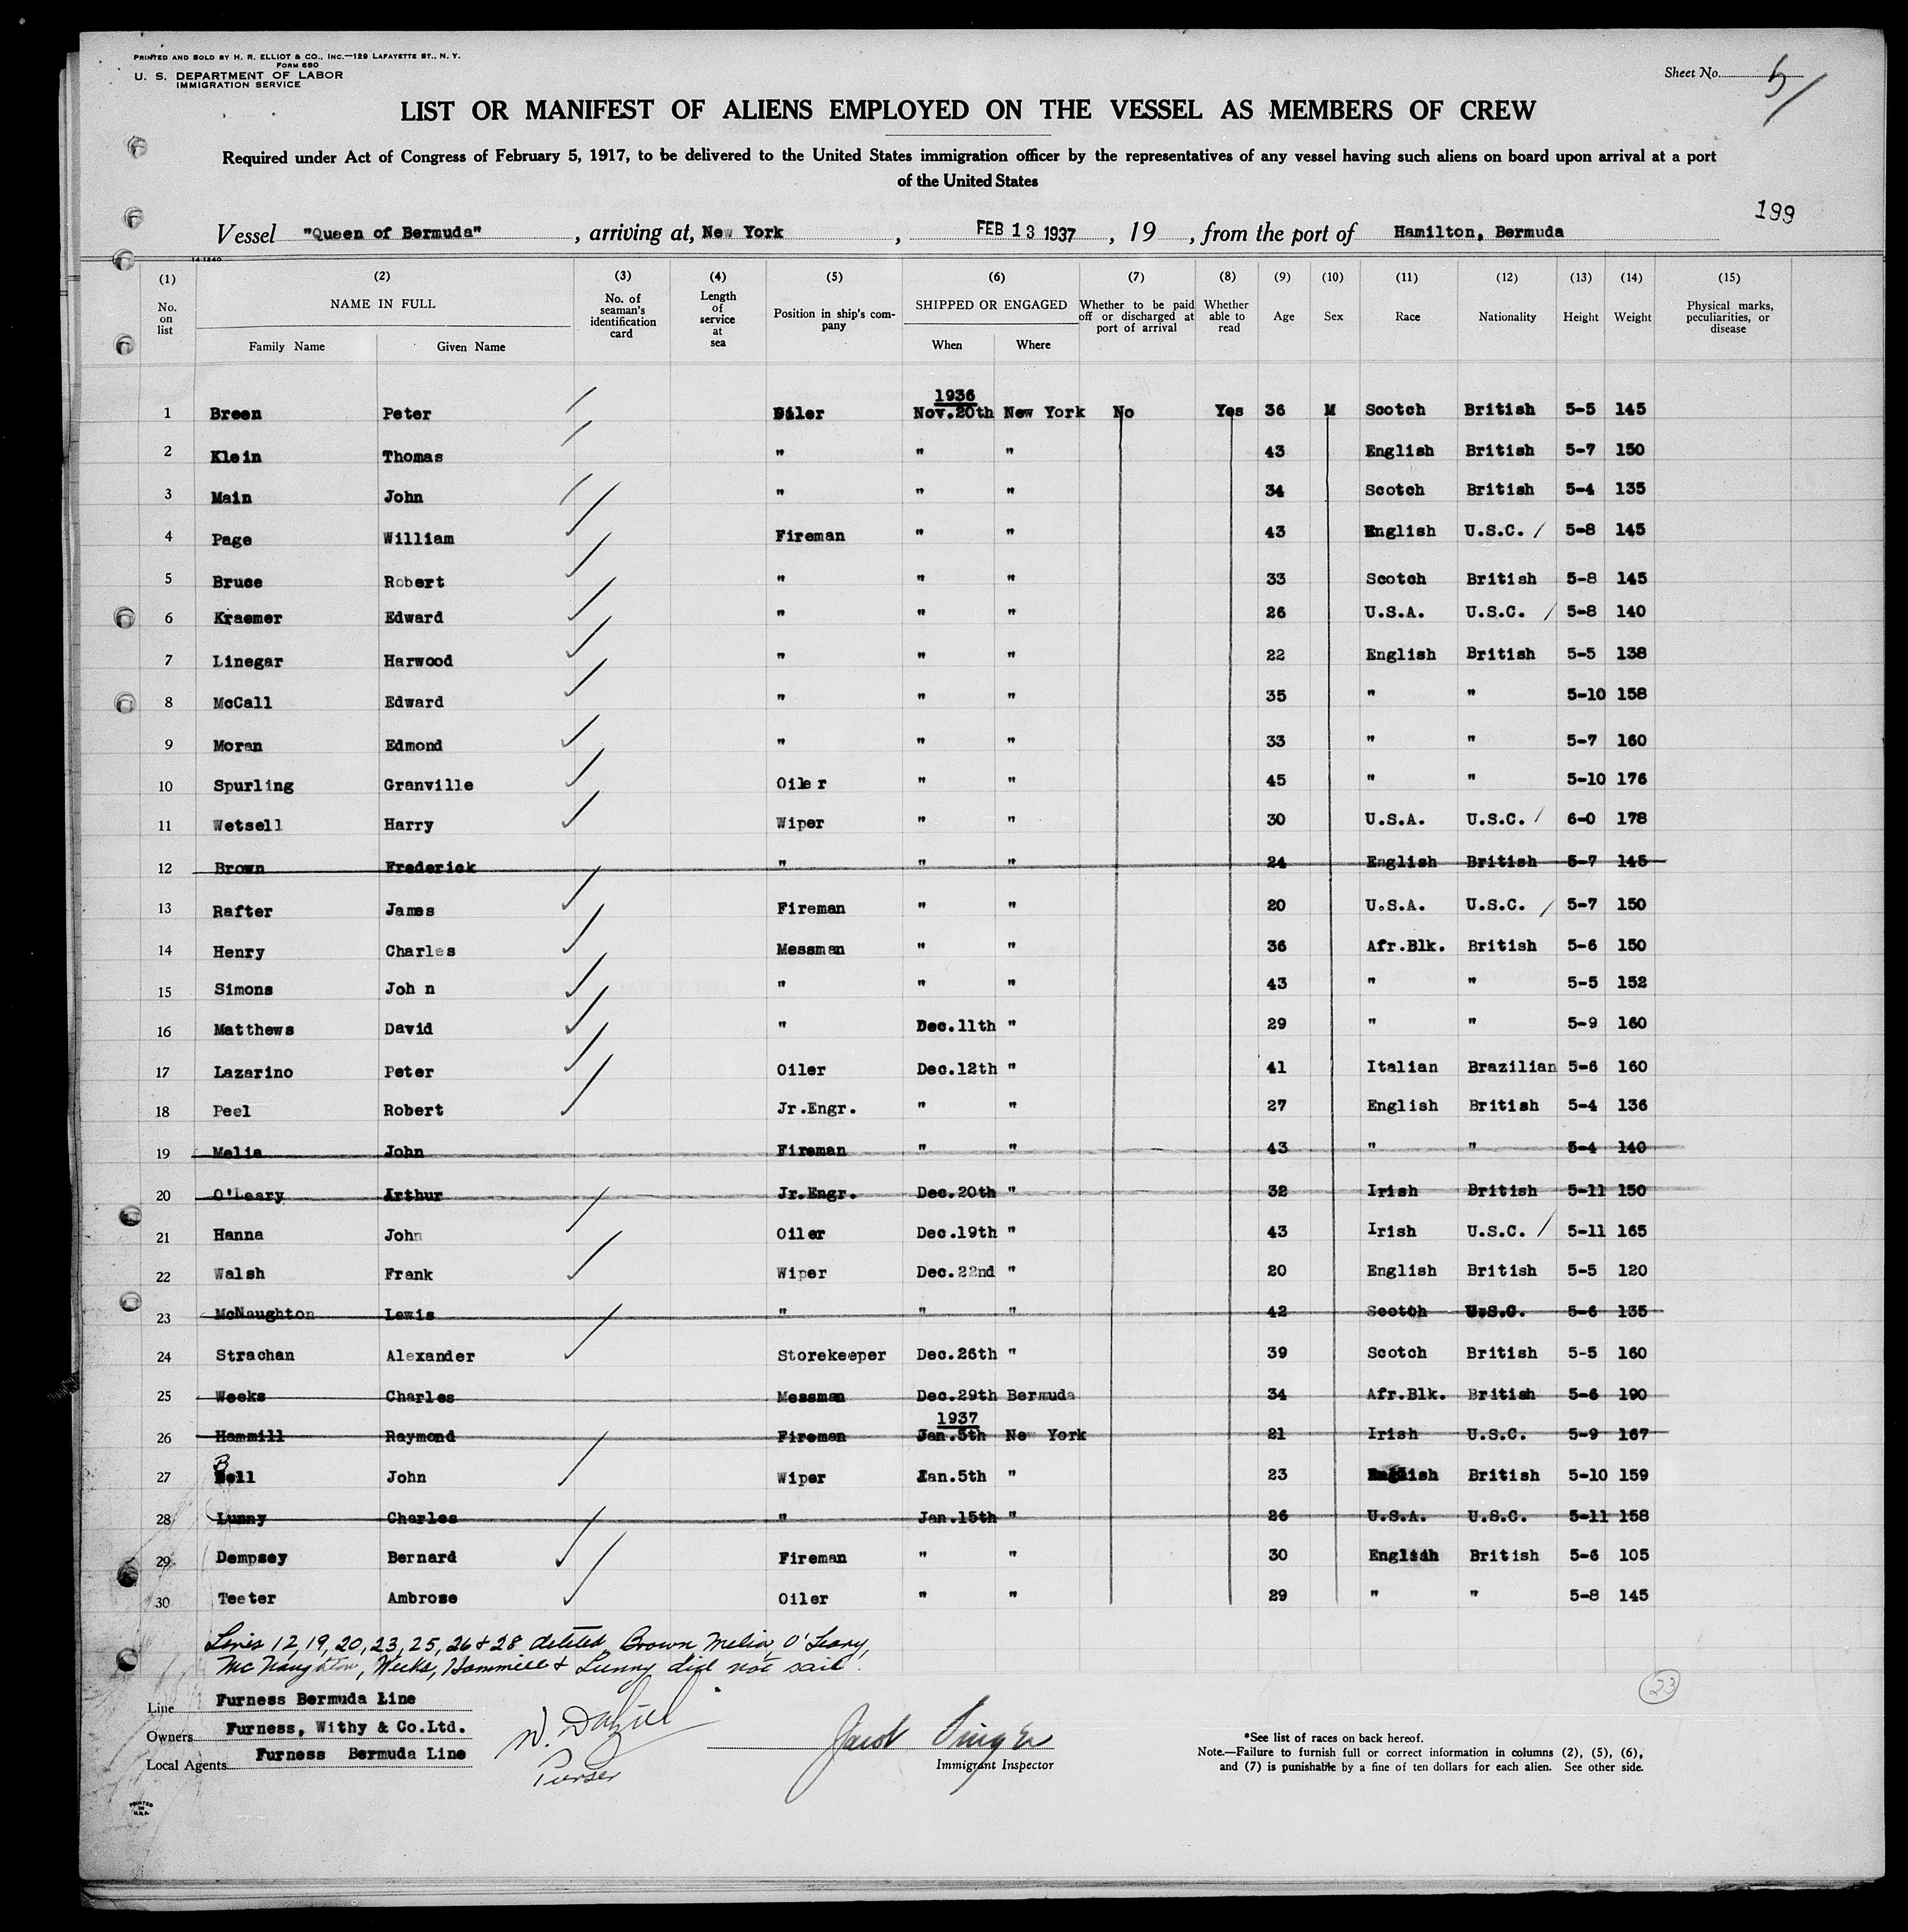 PRINTED AND SOLD BY H. R. ELLIOT & CO., INC.—129 LAFAYETTE ST., N. Y.
FORM 680
U. S. DEPARTMENT OF LABOR
IMMIGRATION SERVICE
Sheet No. 5
LIST OR MANIFEST OF ALIENS EMPLOYED ON THE VESSEL AS MEMBERS OF CREW
Required under Act of Congress of February 5, 1917, to be delivered to the United States immigration officer by the representatives of any vessel having such aliens on board upon arrival at a port
of the United States
199
Vessel "Queen of Bermuda", arriving at, New York, FEB 13 1937, 19, from the port of Hamilton, Bermuda
14-1240
(1) (2) (3) (4) (5) (6) (7) (8) (9) (10) (11) (12) (13) (14) (15)
No. on list NAME IN FULL Family Name Given Name No. of seaman's identification card Length of service at sea Position in ship's company SHIPPED OR ENGAGED When Where Whether to be paid off or discharged at port of arrival Whether able to read Age Sex Race Nationality Height Weight Physical marks, peculiarities, or disease
1936
1 Breen Peter Oiler Nov.20th New York No Yes 36 M Scotch British 5-5 145
2 Klein Thomas " " " 43 English British 5-7 150
3 Main John " " " 34 Scotch British 5-4 135
4 Page William Fireman " " 43 English U.S.C. / 5-8 145
5 Bruce Robert " " " 33 Scotch British 5-8 145
6 Kraemer Edward " " " 26 U.S.A. U.S.C. / 5-8 140
7 Linegar Harwood " " " 22 English British 5-5 138
8 McCall Edward " " " 35 " " 5-10 158
9 Moran Edmond " " " 33 " " 5-7 160
10 Spurling Granville Oiler " " 45 " " 5-10 176
11 Wetsell Harry Wiper " " 30 U.S.A. U.S.C. / 6-0 178
12 Brown Frederick " " " 24 English British 5-7 145
13 Rafter James Fireman " " 20 U.S.A. U.S.C. / 5-7 150
14 Henry Charles Messman " " 36 Afr.Blk. British 5-6 150
15 Simons John " " " 43 " " 5-5 152
16 Matthews David " Dec.11th " 29 " " 5-9 160
17 Lazarino Peter Oiler Dec.12th " 41 Italian Brazilian 5-6 160
18 Peel Robert Jr.Engr. " " 27 English British 5-4 136
19 Melia John Fireman " " 43 " " 5-4 140
20 O'Leary Arthur Jr.Engr. Dec.20th " 32 Irish British 5-11 150
21 Hanna John Oiler Dec.19th " 43 Irish U.S.C. / 5-11 165
22 Walsh Frank Wiper Dec.22nd " 20 English British 5-5 120
23 McNaughton Lewis " " " 42 Scotch U.S.C. 5-6 135
24 Strachan Alexander Storekeeper Dec.26th " 39 Scotch British 5-5 160
25 Weeks Charles Messman Dec.29th Bermuda 34 Afr.Blk. British 5-6 190
1937
26 Hammill Raymond Fireman Jan.5th New York 21 Irish U.S.C. 5-9 167
27 Bell John Wiper Jan.5th " 23 English British 5-10 159
28 Lunny Charles " Jan.15th " 26 U.S.A. U.S.C. 5-11 158
29 Dempsey Bernard Fireman " " 30 English British 5-6 105
30 Teeter Ambrose Oiler " " 29 " " 5-8 145
Lines 12, 19, 20, 23, 25, 26 & 28 deleted. Brown Melia, O'Leary,
McNaughton, Weeks, Hammill & Lunny did not sail.
23
Line Furness Bermuda Line
Owners Furness, Withy & Co.Ltd.
Local Agents Furness Bermuda Line
Purser
Jacob Singer
Immigrant Inspector
*See list of races on back hereof.
Note.—Failure to furnish full or correct information in columns (2), (5), (6),
and (7) is punishable by a fine of ten dollars for each alien. See other side.
PRINTED IN U.S.A.